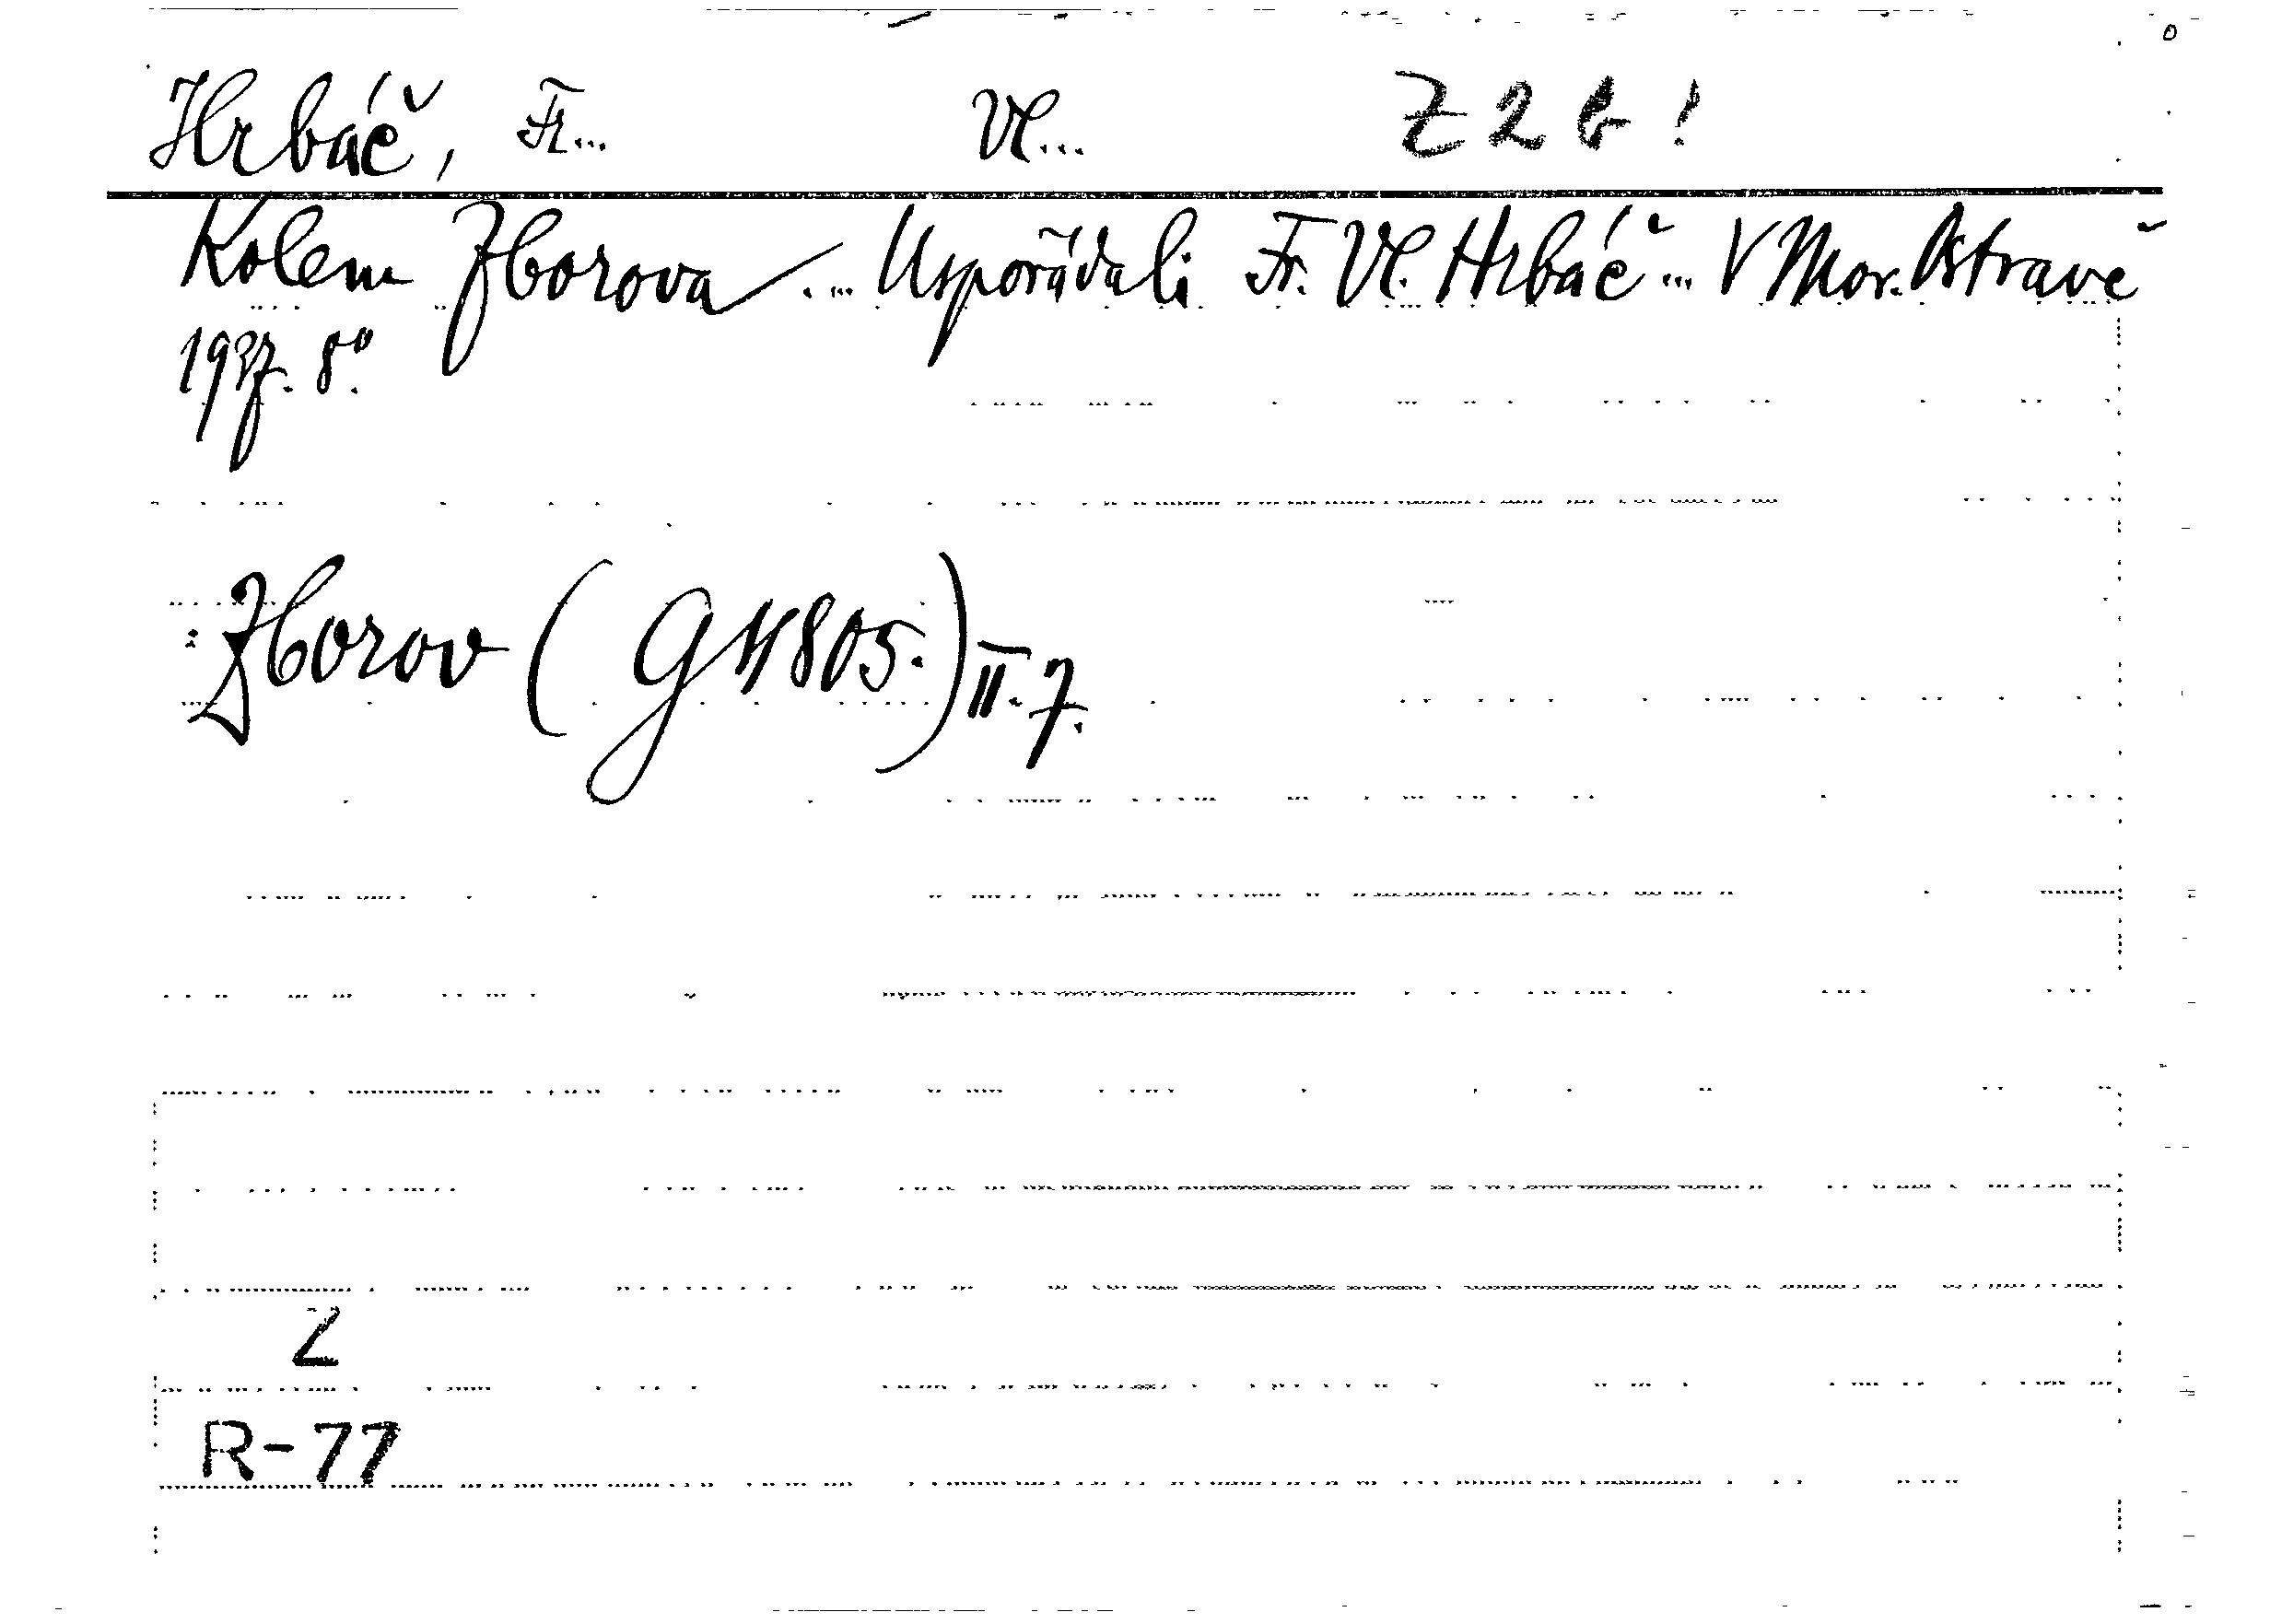 Hrbáč, Fr... Vl... Z 2 b !
Kolem Zborova ... Uspořádali Fr. Vl. Hrbáč ... V Mor. Ostravě
1937. 8°.
: Zborov (G 11805.) II. 7.
Z
R-77